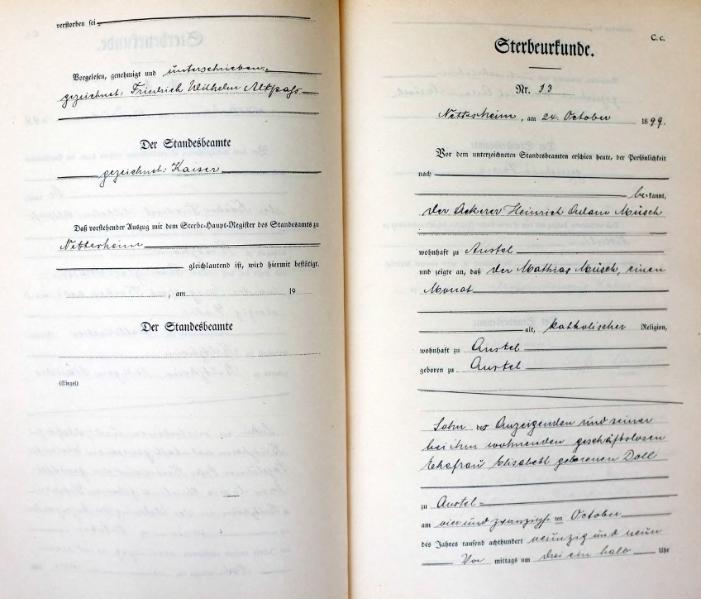 verstorben sei
Vorgelesen, genehmigt und unterschrieben
gezeichnet: Friedrich Wilhelm Altpass
Der Standesbeamte
gezeichnet: Kaiser
Daß vorstehender Auszug mit dem Sterbe-Haupt-Register des Standesamts zu
Nettersheim
gleichlautend ist, wird hiermit bestätigt.
, am 19
Der Standesbeamte
(Siegel)
C. c.
Sterbeurkunde.
Nr. 13
Nettersheim, am 24. October 1899.
Vor dem unterzeichneten Standesbeamten erschien heute, der Persönlichkeit
nach
bekannt,
der Ackerer Heinrich Müsch
wohnhaft zu
und zeigte an, daß der Mathias Müsch, einen
Monat
alt, katholischer Religion,
wohnhaft zu
geboren zu
Sohn des Anzeigenden und seiner
bei ihm wohnenden geschäftslosen
Ehefrau Elisabeth geborenen Doll
zu
am vier und zwanzig ten October
des Jahres tausend achthundert neunzig und neun
Vor mittags um drei ein halb Uhr